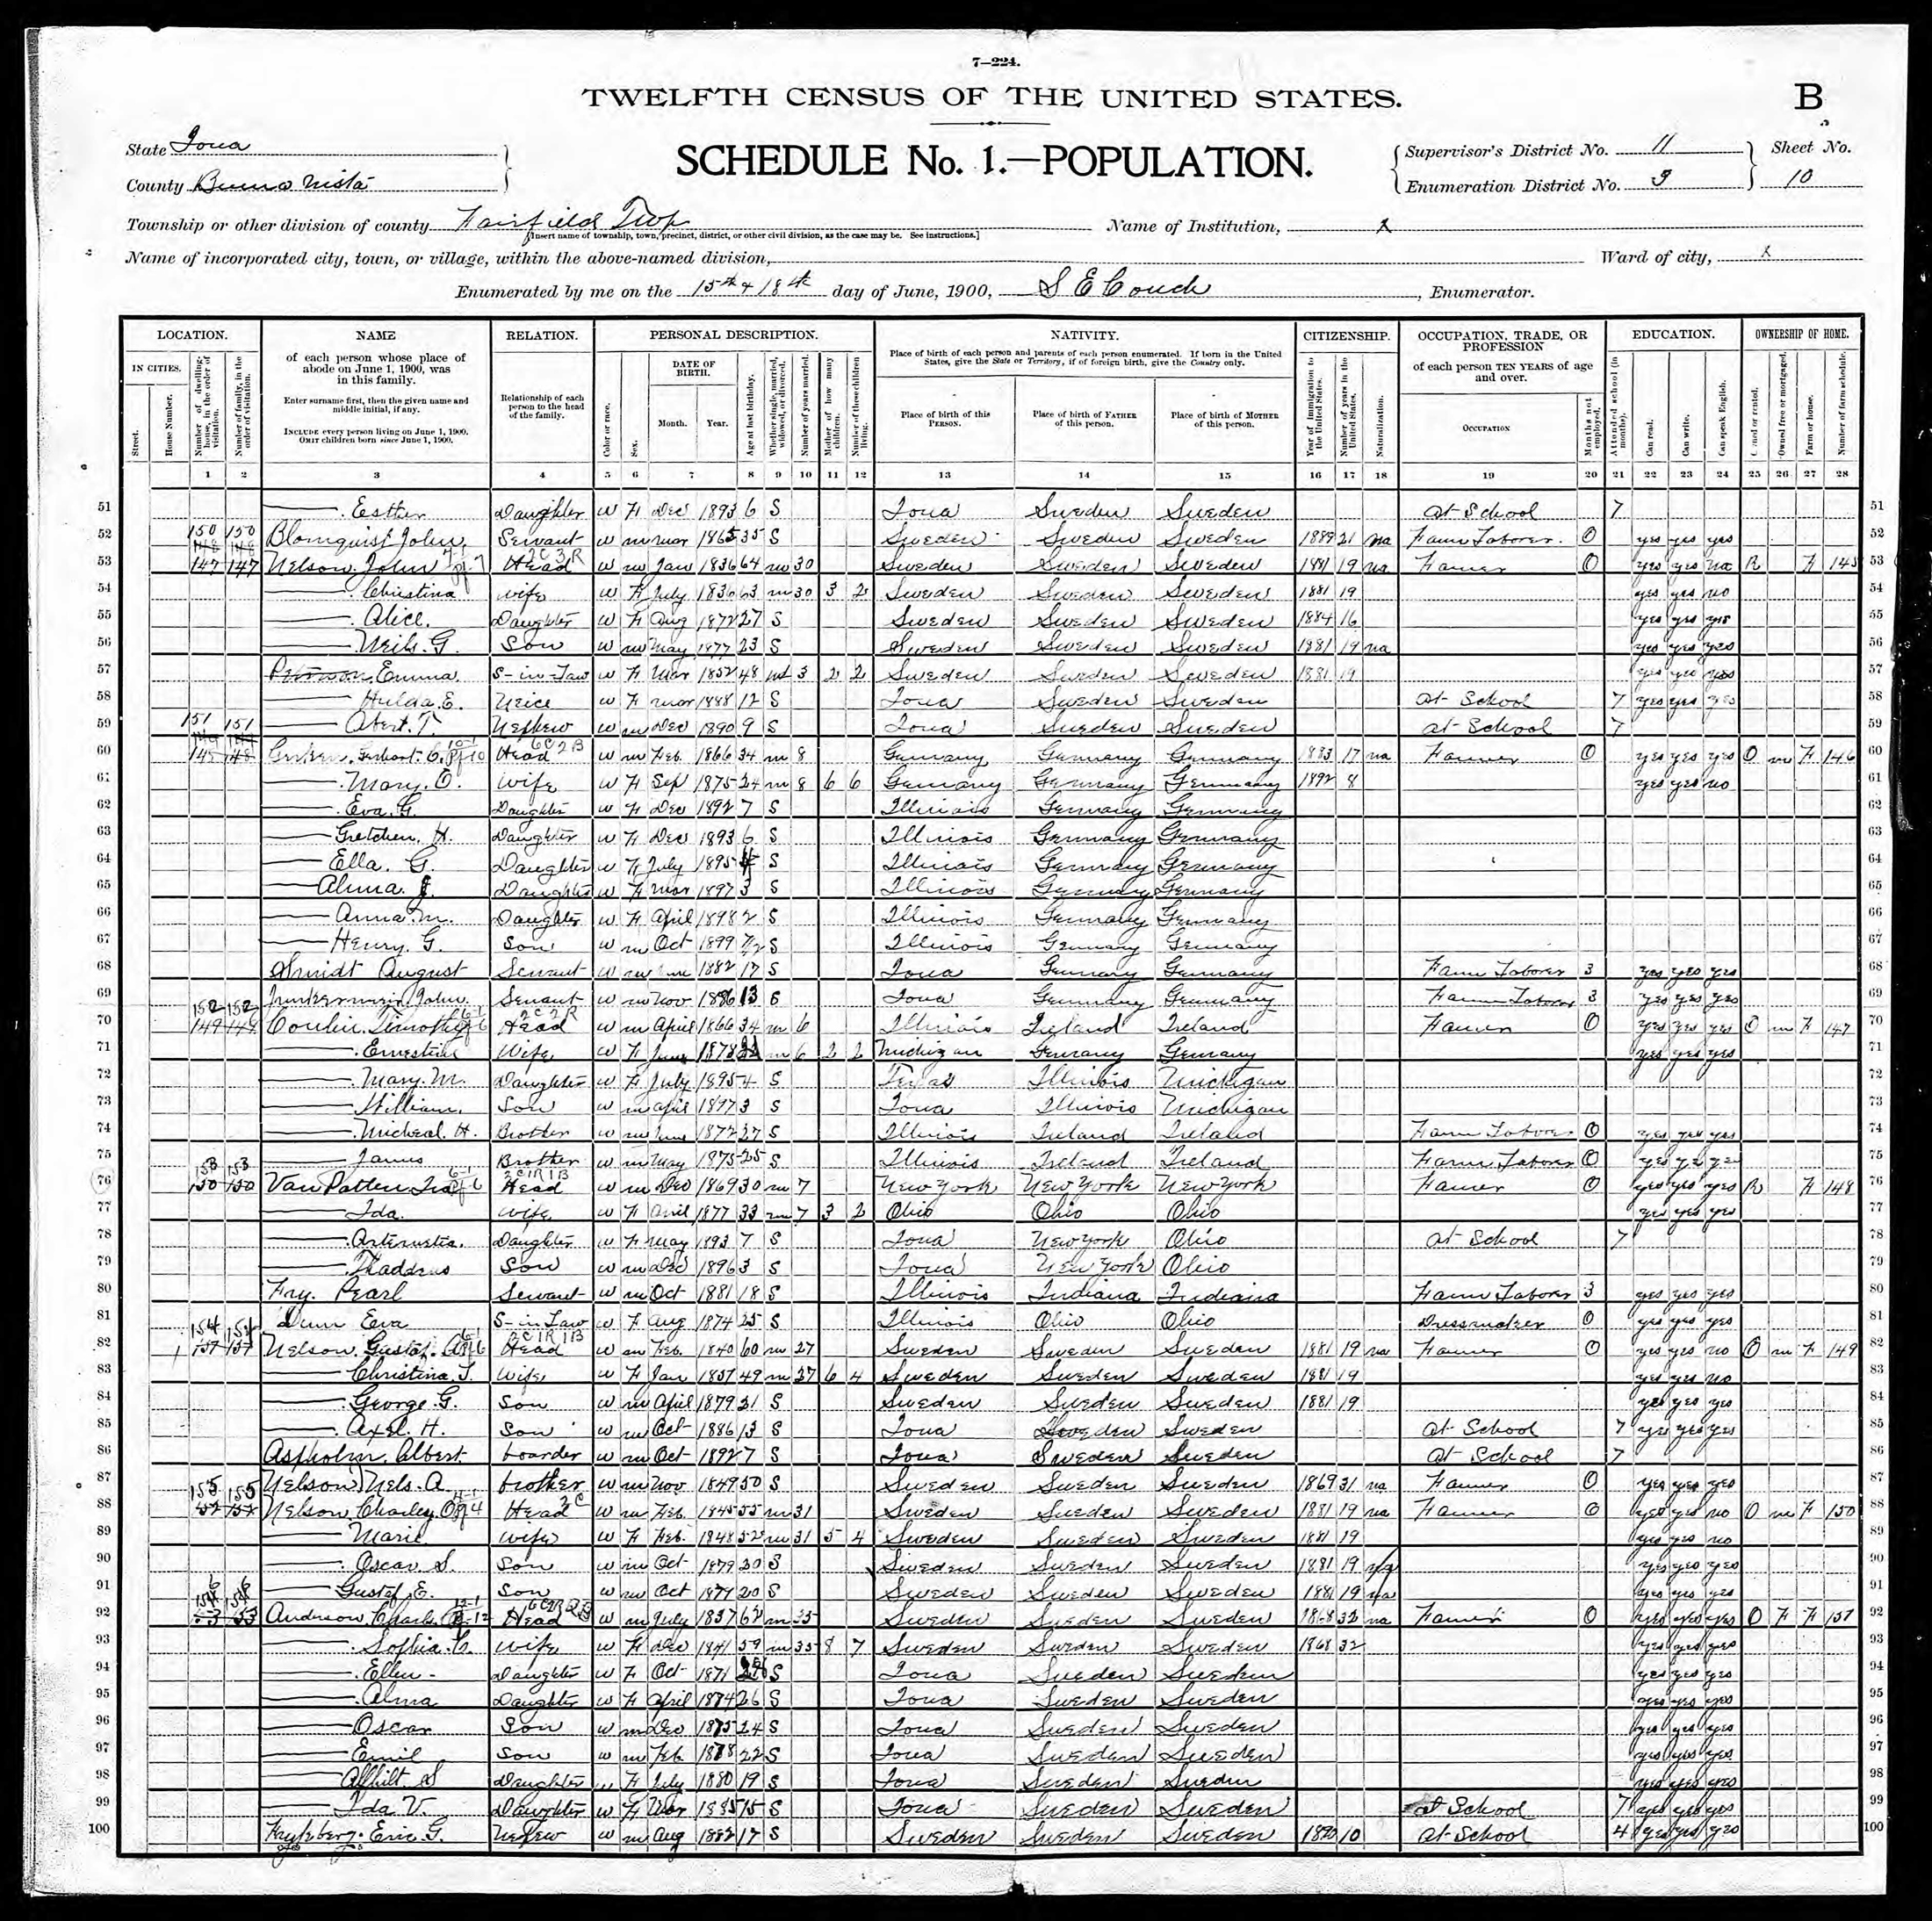 7—224.
TWELFTH CENSUS OF THE UNITED STATES.
B
State Iowa
SCHEDULE No. 1.—POPULATION.
Supervisor's District No. 11 Sheet No.
County Buena Vista
Enumeration District No. 9 10
Township or other division of county Fairfield Twp Name of Institution, x
[Insert name of township, town, precinct, district, or other civil division, as the case may be. See instructions.]
Name of incorporated city, town, or village, within the above-named division, Ward of city, x
Enumerated by me on the 15th & 18th day of June, 1900, S E Couch, Enumerator.
LOCATION. NAME RELATION. PERSONAL DESCRIPTION. NATIVITY. CITIZENSHIP. OCCUPATION, TRADE, OR PROFESSION EDUCATION. OWNERSHIP OF HOME.
IN CITIES. Street. House Number. Number of dwelling-house, in the order of visitation. Number of family, in the order of visitation.
of each person whose place of abode on June 1, 1900, was in this family.
Enter surname first, then the given name and middle initial, if any.
INCLUDE every person living on June 1, 1900. OMIT children born since June 1, 1900.
Relationship of each person to the head of the family.
Color or race. Sex. DATE OF BIRTH. Month. Year. Age at last birthday. Whether single, married, widowed, or divorced. Number of years married. Mother of how many children. Number of these children living.
Place of birth of each person and parents of each person enumerated. If born in the United States, give the State or Territory, if of foreign birth, give the Country only.
Place of birth of this PERSON. Place of birth of FATHER of this person. Place of birth of MOTHER of this person.
Year of immigration to the United States. Number of years in the United States. Naturalization.
of each person TEN YEARS of age and over.
OCCUPATION Months not employed.
Attended school (in months). Can read. Can write. Can speak English.
Owned or rented. Owned free or mortgaged. Farm or house. Number of farm schedule.
1 2 3 4 5 6 7 8 9 10 11 12 13 14 15 16 17 18 19 20 21 22 23 24 25 26 27 28
51 Esther Daughter W F Dec 1893 6 S Iowa Sweden Sweden At School 7 51
52 150 150 Blomquist John Servant W m mar 1865 35 S Sweden Sweden Sweden 1889 21 na Farm Laborer 0 yes yes yes 52
53 147 147 Nelson John Head W m Jan 1836 64 m 30 Sweden Sweden Sweden 1881 19 na Farmer 0 yes yes no R F 145 53
54 Christina wife W F July 1836 63 m 30 3 2 Sweden Sweden Sweden 1881 19 yes yes no 54
55 Alice Daughter W F Aug 1872 27 S Sweden Sweden Sweden 1884 16 yes yes yes 55
56 Neils G. Son W m May 1877 23 S Sweden Sweden Sweden 1881 19 na yes yes yes 56
57 Emma S-in-Law W F Mar 1852 48 wd 3 2 2 Sweden Sweden Sweden 1881 19 yes yes yes 57
58 Hulda E. Neice W F mar 1888 12 S Iowa Sweden Sweden At School 7 yes yes yes 58
59 151 151 Abert T. Nephew W m Dec 1890 9 S Iowa Sweden Sweden at School 7 59
60 148 148 Head W m Feb 1866 34 m 8 Germany Germany Germany 1883 17 na Farmer 0 yes yes yes O m F 146 60
61 Mary O. Wife W F Sep 1875 24 m 8 6 6 Germany Germany Germany 1892 8 yes yes no 61
62 Eva G. Daughter W F Dec 1892 7 S Illinois Germany Germany 62
63 Gretchen H. Daughter W F Dec 1893 6 S Illinois Germany Germany 63
64 Ella G. Daughter W F July 1895 4 S Illinois Germany Germany 64
65 Alma J. Daughter W F mar 1897 3 S Illinois Germany Germany 65
66 Anna M. Daughter W F April 1898 2 S Illinois Germany Germany 66
67 Henry G. Son W m Oct 1899 7/12 S Illinois Germany Germany 67
68 Shmidt August Servant W m June 1882 17 S Iowa Germany Germany Farm Laborer 3 yes yes yes 68
69 152 152 John Servant W m Nov 1886 13 S Iowa Germany Germany Farm Laborer 3 yes yes yes 69
70 149 149 Conlin Timothy Head W m April 1866 34 m 6 Illinois Ireland Ireland Farmer 0 yes yes yes O m F 147 70
71 Ernestine Wife W F June 1878 m 6 2 2 Michigan Germany Germany yes yes yes 71
72 Mary M. Daughter W F July 1895 4 S Texas Illinois Michigan 72
73 William Son W m April 1897 3 S Iowa Illinois Michigan 73
74 Micheal H. Brother W m June 1872 27 S Illinois Ireland Ireland Farm Laborer 0 yes yes yes 74
75 153 153 James Brother W m May 1875 25 S Illinois Ireland Ireland Farm Laborer 0 yes yes yes 75
76 150 150 Van Patten Ira Head W m Dec 1869 30 m 7 New York New York New York Farmer 0 yes yes yes R F 148 76
77 Ida wife W F April 1877 33 m 7 3 2 Ohio Ohio Ohio yes yes yes 77
78 Daughter W F May 1893 7 S Iowa New York Ohio At School 7 78
79 Thaddeus Son W m Dec 1896 3 S Iowa New York Ohio 79
80 Fry Pearl Servant W m Oct 1881 18 S Illinois Indiana Indiana Farm Laborer 3 yes yes yes 80
81 154 154 Dunn Eva S-in Law W F Aug 1874 25 S Illinois Ohio Ohio Dressmaker 0 yes yes yes 81
82 151 151 Nelson Gustof Head W m Feb 1840 60 m 27 Sweden Sweden Sweden 1881 19 na Farmer 0 yes yes no O m F 149 82
83 Christina T. Wife W F Jan 1851 49 m 27 6 4 Sweden Sweden Sweden 1881 19 yes yes no 83
84 George G. Son W m April 1879 21 S Sweden Sweden Sweden 1881 19 yes yes yes 84
85 Axel H. Son W m Oct 1886 13 S Iowa Sweden Sweden At School 7 yes yes yes 85
86 Aspholm Albert boarder W m Oct 1892 7 S Iowa Sweden Sweden At School 7 86
87 155 155 Nelson Nels. A. brother W m Nov 1849 50 S Sweden Sweden Sweden 1869 31 na Farmer 0 yes yes yes 87
88 152 152 Nelson Charley Head W m Feb 1845 55 m 31 Sweden Sweden Sweden 1881 19 na Farmer 0 yes yes no O m F 150 88
89 Marie wife W F Feb 1848 52 m 31 5 4 Sweden Sweden Sweden 1881 19 yes yes no 89
90 Oscar S. Son W m Oct 1879 20 S Sweden Sweden Sweden 1881 19 na yes yes yes 90
91 156 156 Gustof E. Son W m Oct 1879 20 S Sweden Sweden Sweden 1881 19 na yes yes yes 91
92 153 153 Anderson Charls Head W m July 1837 62 m 35 Sweden Sweden Sweden 1868 32 na Farmer 0 yes yes yes O F F 151 92
93 Sophia C. Wife W F Dec 1841 59 m 35 8 7 Sweden Sweden Sweden 1868 32 yes yes yes 93
94 Ellen Daughter W F Oct 1871 S Iowa Sweden Sweden yes yes yes 94
95 Alma Daughter W F April 1874 26 S Iowa Sweden Sweden yes yes yes 95
96 Oscar Son W m Dec 1875 24 S Iowa Sweden Sweden yes yes yes 96
97 Emil Son W m Feb 1878 22 S Iowa Sweden Sweden yes yes yes 97
98 Daughter W F July 1880 19 S Iowa Sweden Sweden yes yes yes 98
99 Ida V. Daughter W F Mar 1885 15 S Iowa Sweden Sweden at School 7 yes yes yes 99
100 Eric G. Nefew W m Aug 1882 17 S Sweden Sweden Sweden 1890 10 at School 4 yes yes yes 100